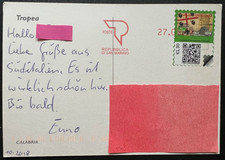 Tropea
Hallo
liebe Grüße aus
Süditalien. Es ist
wirklich schön hier.
Bis bald.
Enno
CALABRIA
POSTE
REPUBBLICA
DI SAN MARINO
27.0